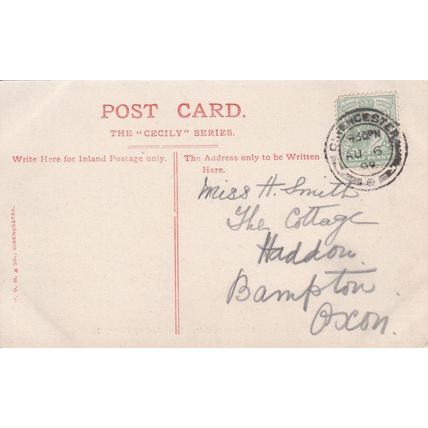 POST CARD.
THE "CECILY" SERIES.
Write Here for Inland Postage only.
The Address only to be Written
Here.
CIRENCESTER
7.30PM
AU 6
PENNY
Miss H. Smith
The Cottage
Haddon
Bampton
Oxon.
& CO., CIRENCESTER.